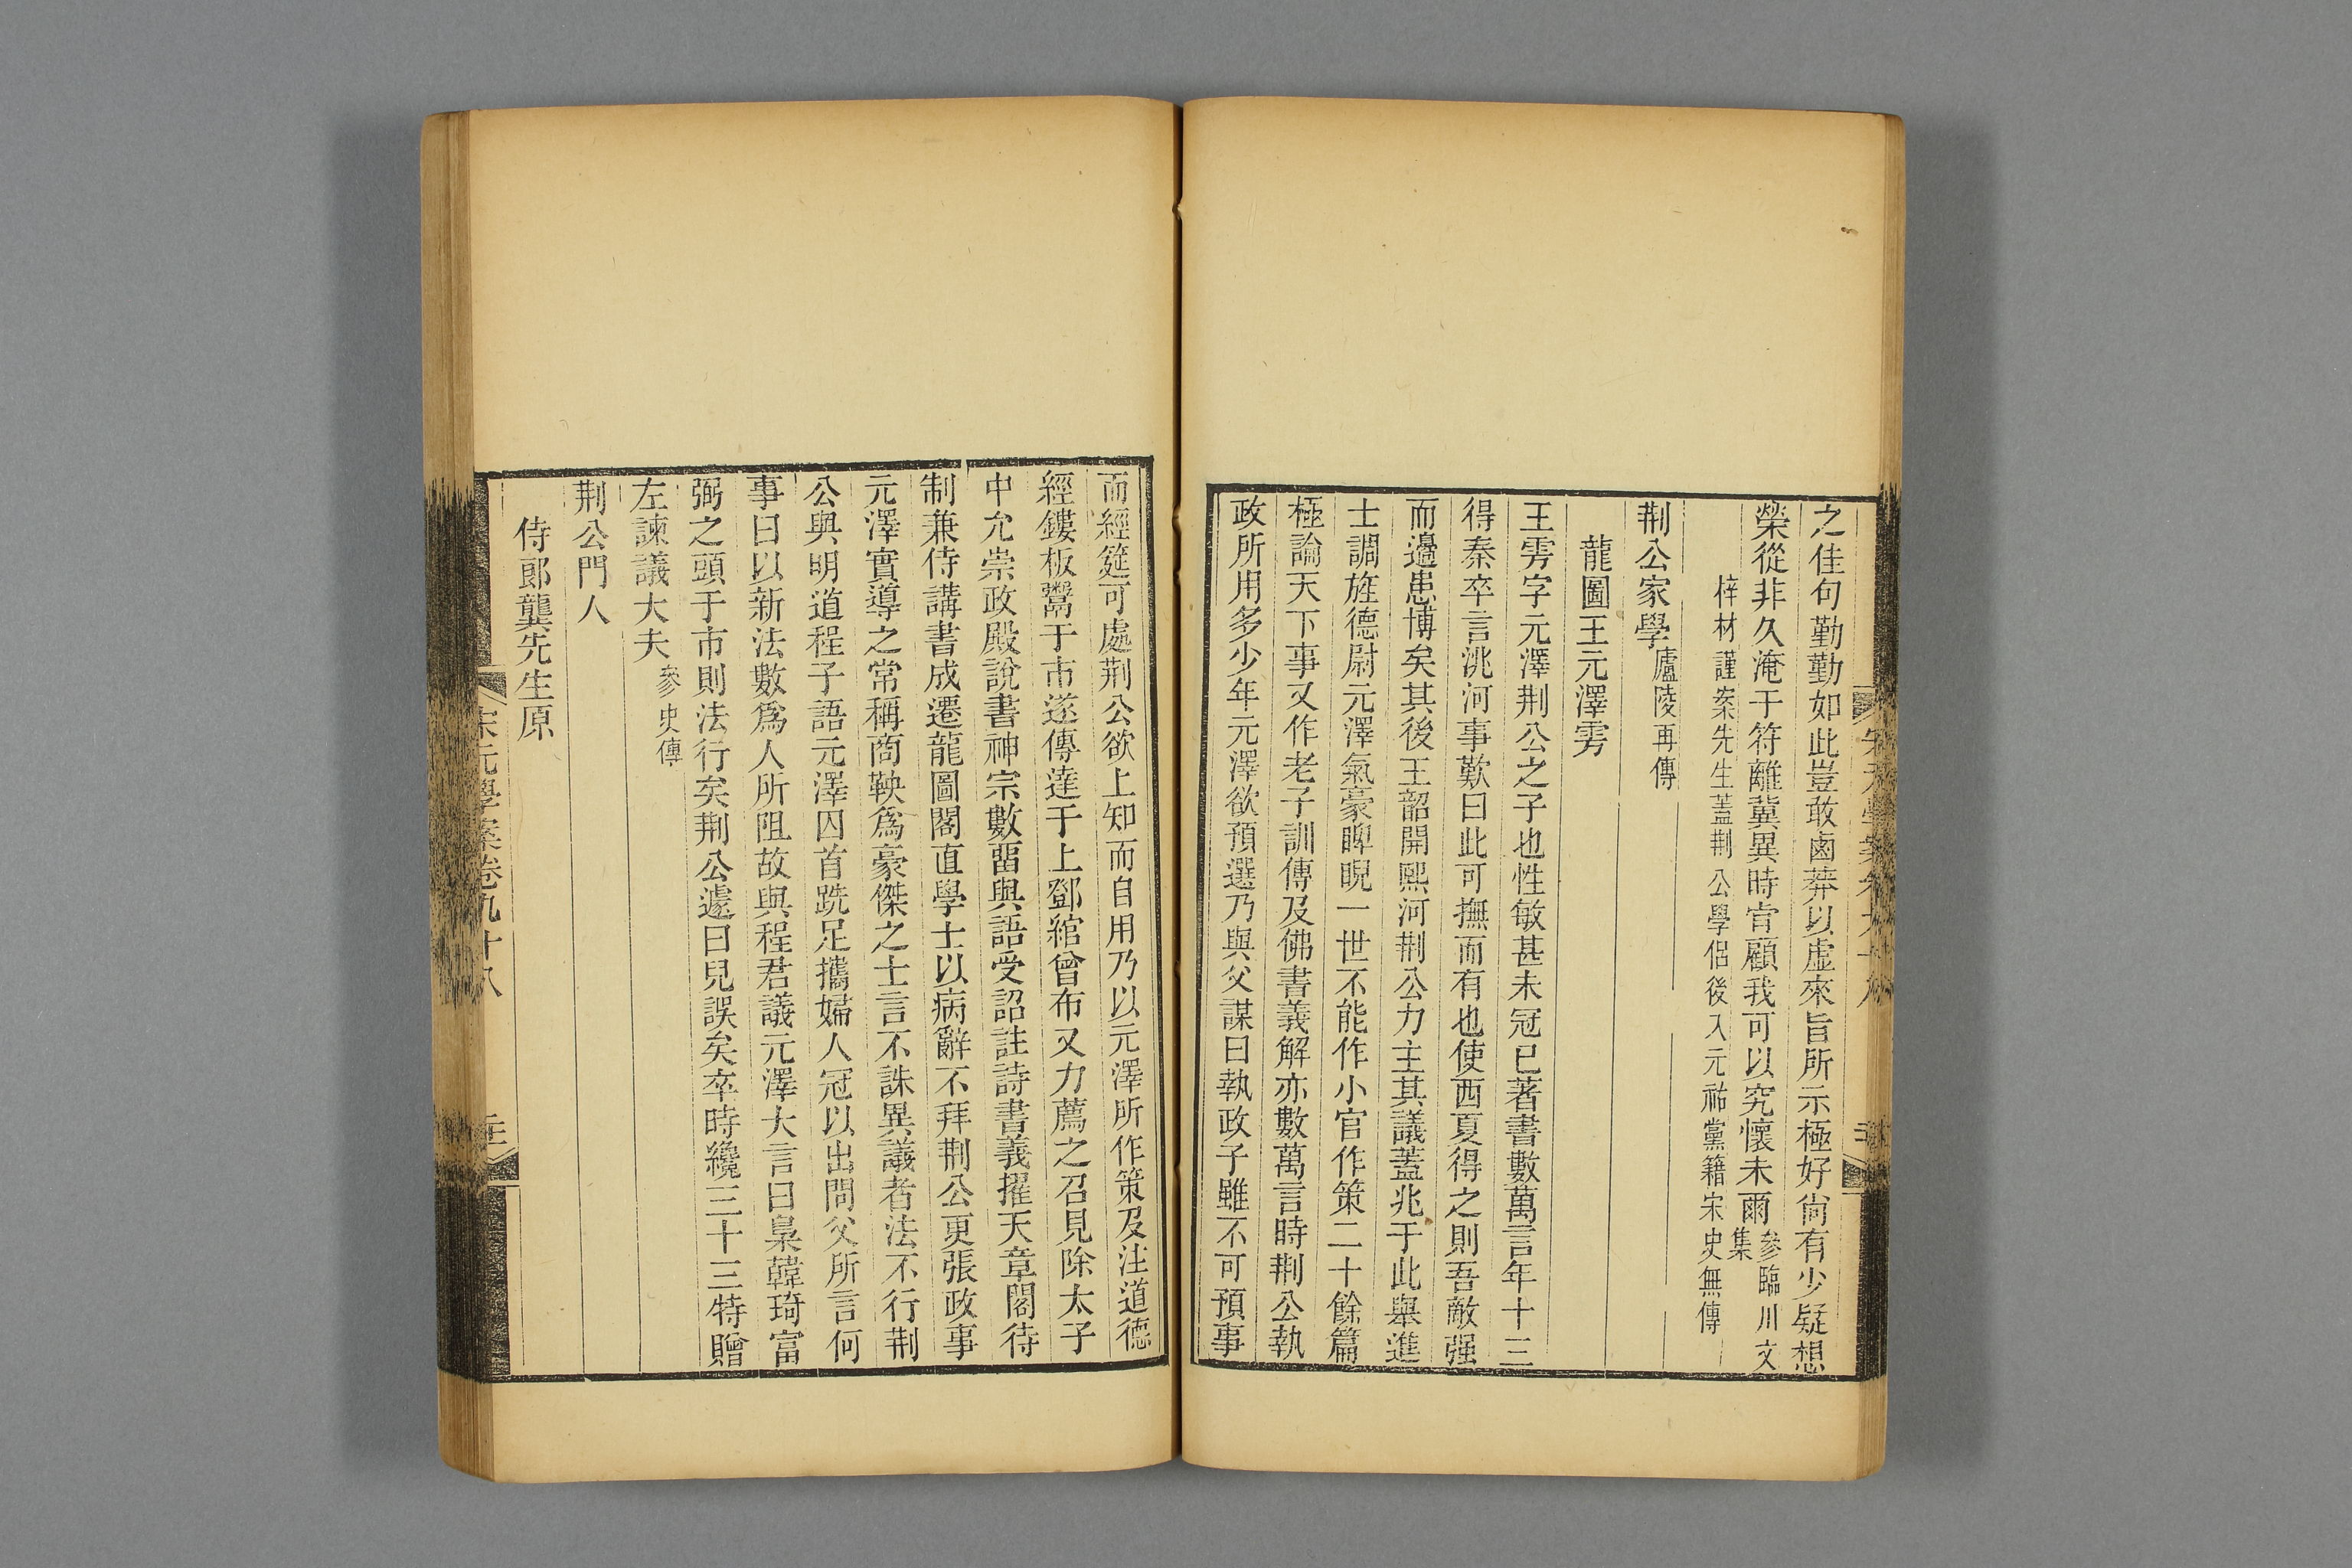 之佳句勤勤如此豈敢鹵莽以虛來旨所示極好尙有少疑想
榮從非久淹于符離冀異時肯顧我可以究懷未爾參臨川文集
梓材謹案先生蓋荆公學侶後入元祐黨籍宋史無傳
荆公家學廬陵再傳
龍圖王元澤雱
王雱字元澤荆公之子也性敏甚未冠已著書數萬言年十三
得秦卒言洮河事歎曰此可撫而有也使西夏得之則吾敵强
而邊患博矣其後王韶開熙河荆公力主其議蓋兆于此舉進
士調旌德尉元澤氣豪睥睨一世不能作小官作策二十餘篇
極論天下事又作老子訓傳及佛書義解亦數萬言時荆公執
政所用多少年元澤欲預選乃與父謀曰執政子雖不可預事
而經筵可處荆公欲上知而自用乃以元澤所作策及注道德
經鏤板鬻于市遂傳達于上鄧綰曾布又力薦之召見除太子
中允崇政殿說書神宗數畱與語受詔註詩書義擢天章閣待
制兼侍講書成遷龍圖閣直學士以病辭不拜荆公更張政事
元澤實導之常稱商鞅爲豪傑之士言不誅異議者法不行荆
公與明道程子語元澤囚首跣足攜婦人冠以出問父所言何
事曰以新法數爲人所阻故與程君議元澤大言曰梟韓琦富
弼之頭于市則法行矣荆公遽曰兒誤矣卒時纔三十三特贈
左諫議大夫參史傳
荆公門人
侍郎龔先生原
宋元學案卷九十八